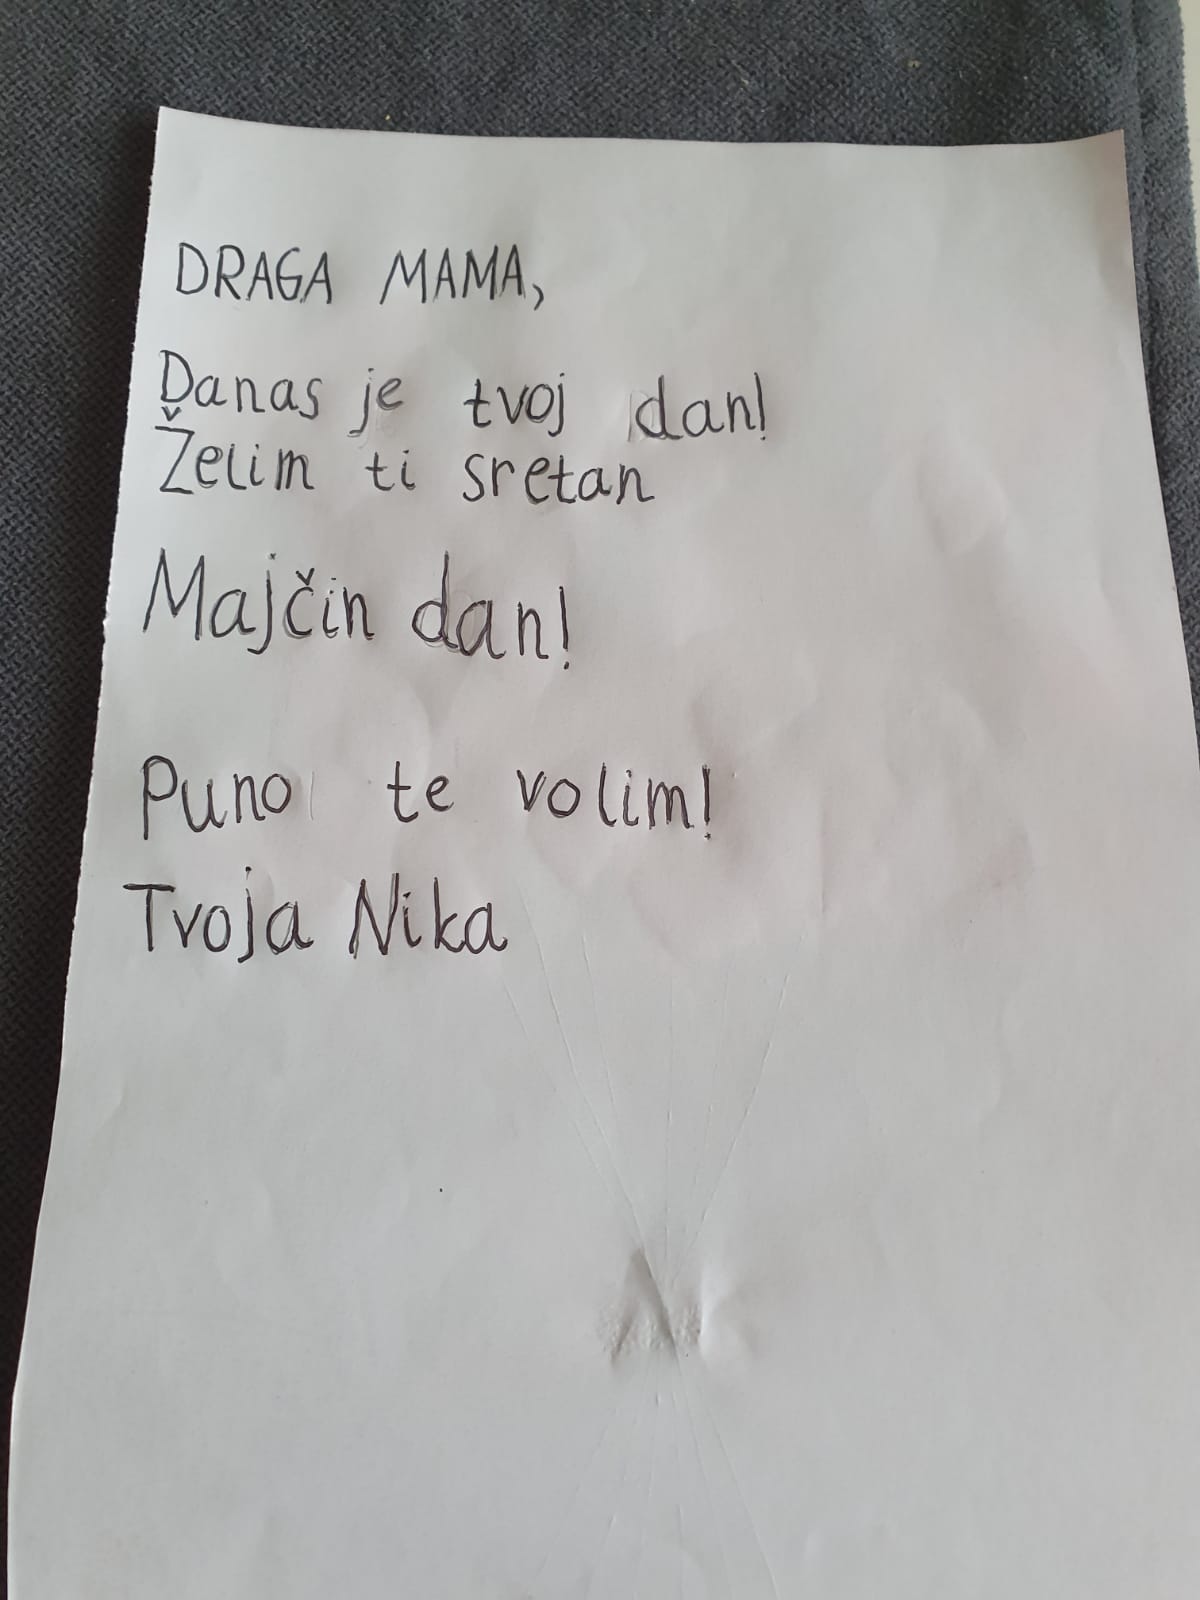 DRAGA MAMA,
Danas je tvoj dan!
Želim ti sretan
Majčin dan!
Puno te volim!
Tvoja Nika